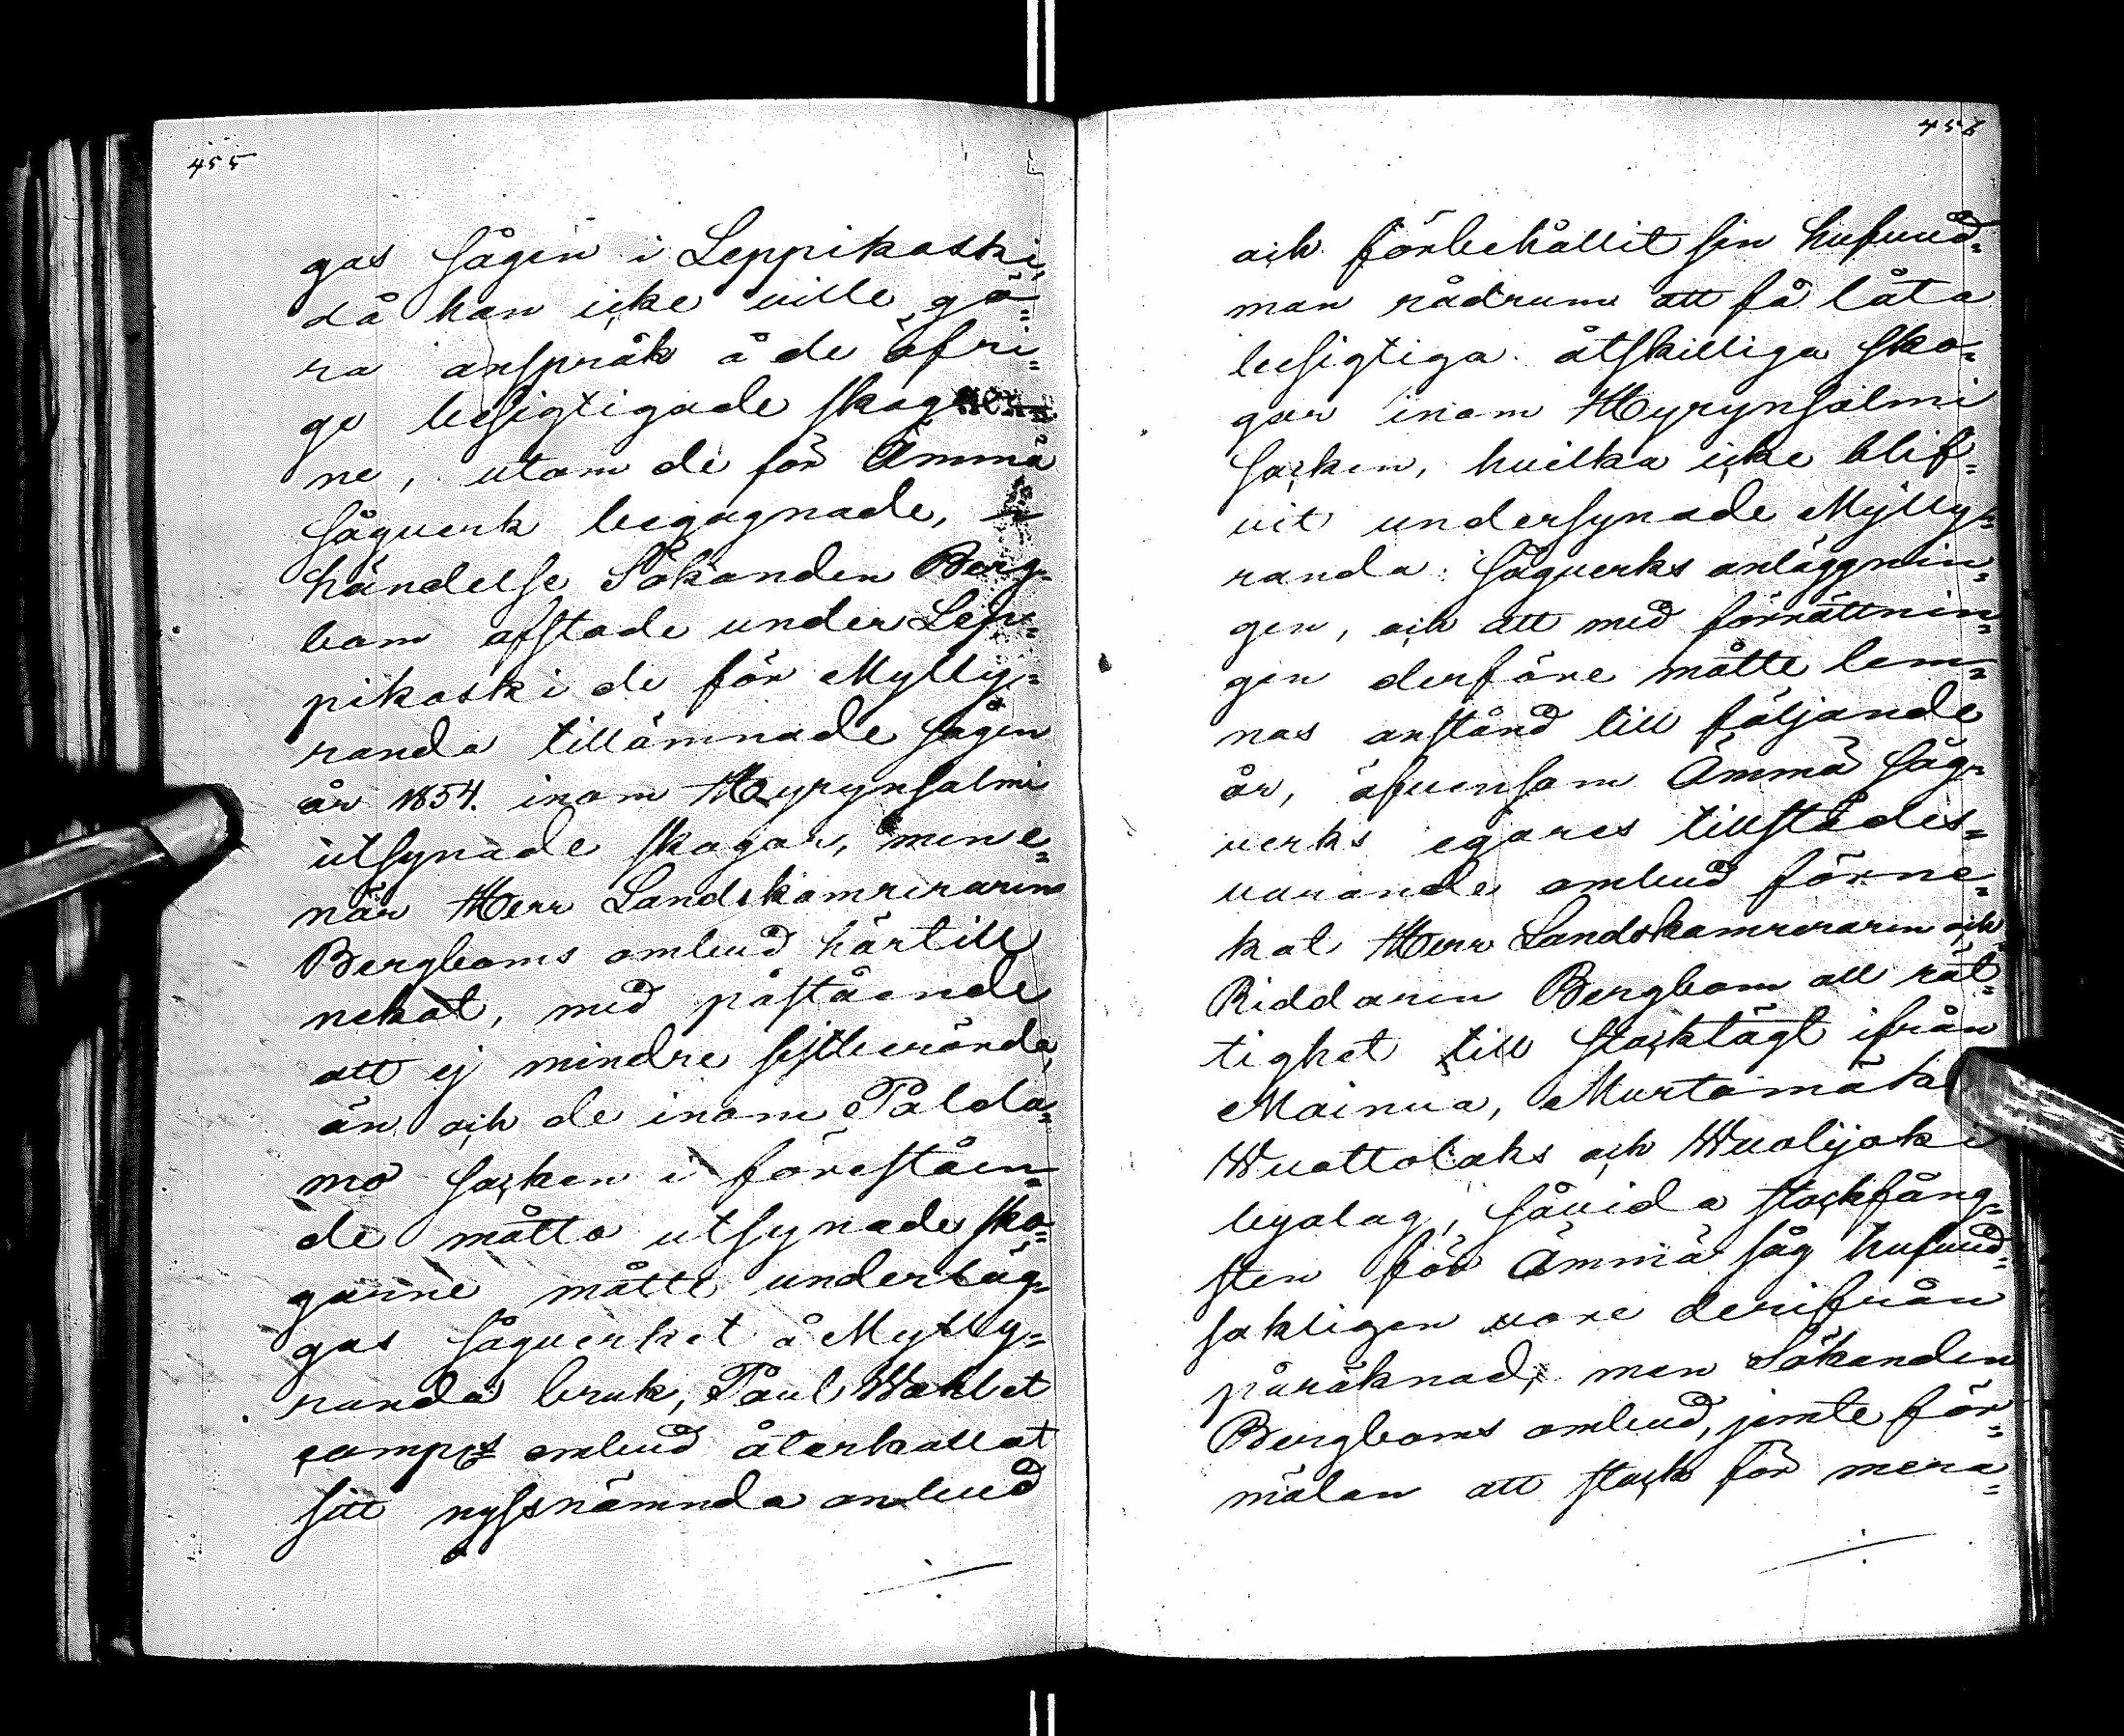 455
gas sågen i Leppikoski,
då han icke ville gö=
ra anspråk å de öfri=
ga besigtigade skogar=
ne, utom de för Ämmä
sågverk begagnade, i
händelse Sökanden Berg=
bom afstode under Lep=
pikoski de för Mylly=
randa tillämnade sågen
år 1854. inom Hyrynsalmi
utsynade skogar, men e=
när Herr Landskamreraren
Bergboms ombud härtill
nekat, med påstående
att ej mindre sistberörda,
än och de inom Palda=
mo socken i föreståen=
de måtto utsynade sko=
garne måtte underläg=
gas sågverket å Mylly=
randa bruk, Paul Wahl et
comp:s ombud återkallat
sitt nyssnämnda anbud
456
och förbehållit sin hufvud=
man rådrum att få låta
besigtiga åtskilliga sko=
gar inom Hyrynsalmi
socken, hvilka icke blif=
vit undersynade Mylly=
randa sågverks anläggnin=
gen, och att med förrättnin=
gen derföre måtte lem=
nas anstånd till följande
år, äfvensom Ämmä såg=
verks egares tillstädes=
varande ombud förne=
kat Herr Landskamreraren och
Riddaren Bergbom all rät=
tighet till stocktägt ifrån
Mainua, Murtomäki
Wuottolaks och Wuolijoki
byalag, såvida stockfång=
sten för Ämmä såg hufvud=
sakligen vore derifrån
påräknad, men Sökanden
Bergboms ombud, jemte för=
mälan att stock för mera=